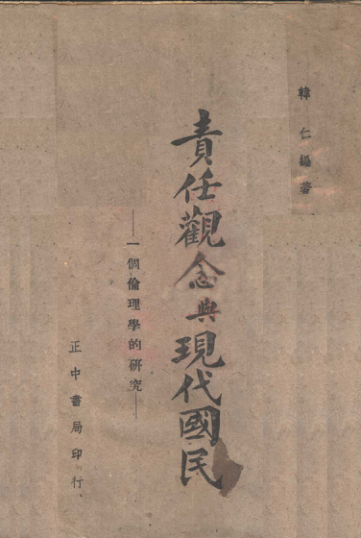 韓仁著
責任觀念與現代國民
——一個倫理學的研究——
正中書局印行